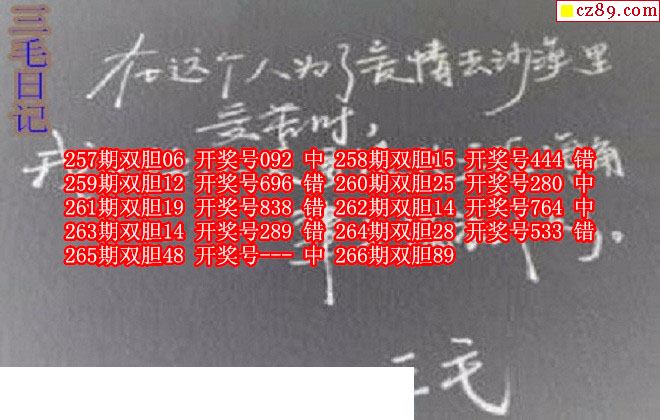 cz89.com
三毛日记
在这个人为了爱情去沙漠里
受苦时,
257期双胆06 开奖号092 中 258期双胆15 开奖号444 错
259期双胆12 开奖号696 错 260期双胆25 开奖号280 中
261期双胆19 开奖号838 错 262期双胆14 开奖号764 中
263期双胆14 开奖号289 错 264期双胆28 开奖号533 错
265期双胆48 开奖号--- 中 266期双胆89
三毛